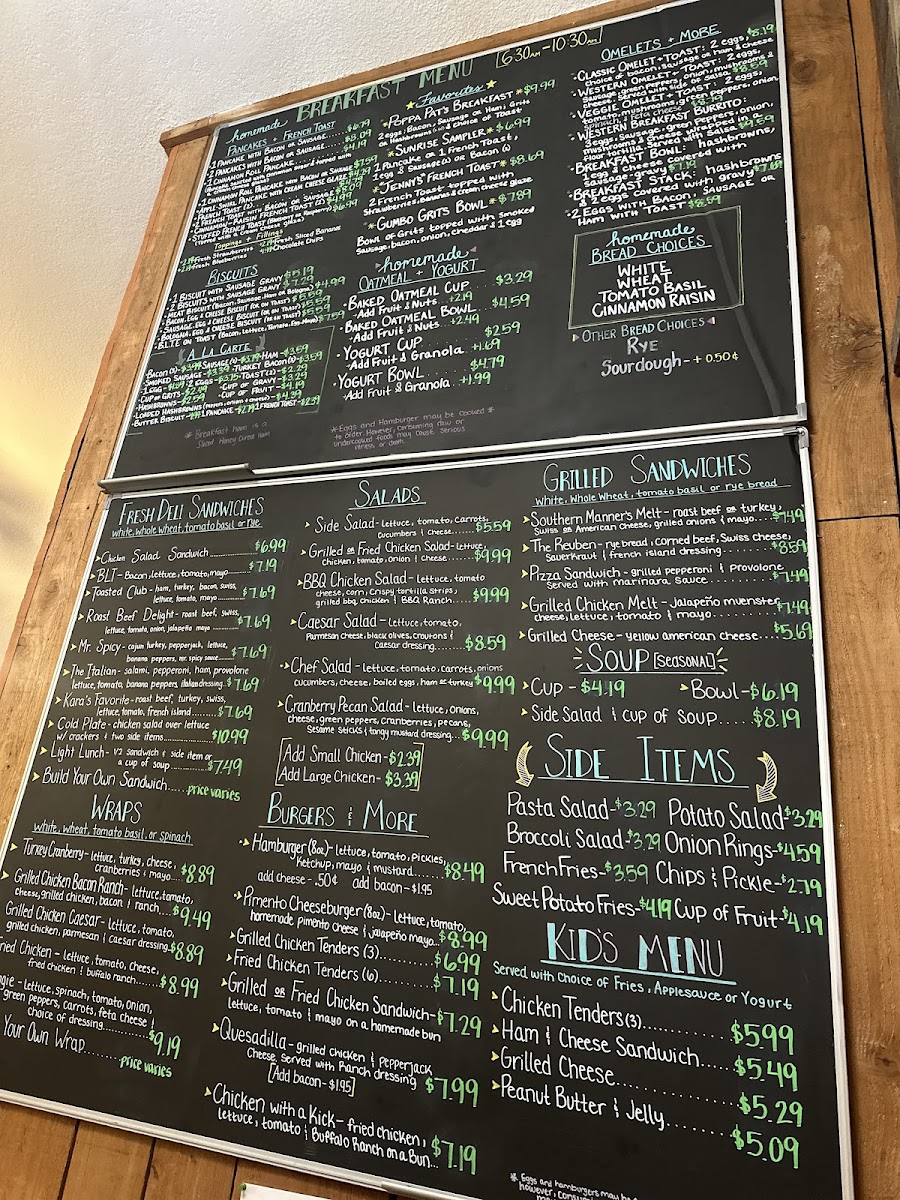 BREAKFAST MENU [6:30AM-10:30AM]
homemade
PANCAKES + FRENCH TOAST
2 PANCAKES WITH BACON OR SAUSAGE
1 CINNAMON ROLL PANCAKE......$4.19
1 CINNAMON ROLL PANCAKE WITH BACON OR SAUSAGE
APPLE SWIRL PANCAKE WITH CREAM CHEESE GLAZE
2 FRENCH TOAST WITH BACON OR SAUSAGE
CINNAMON-RAISIN FRENCH TOAST (2)
STUFFED FRENCH TOAST (Blueberry or Raspberry) $6.99
Toppings + Fillings
Fresh Strawberries
Fresh Sliced Bananas
Fresh Blueberries
Chocolate Chips
BISCUITS
•1 BISCUIT WITH SAUSAGE GRAVY $5.19
•2 BISCUITS WITH SAUSAGE GRAVY $7.29
MEAT BISCUIT (Bacon, Sausage, Ham or Bologna) $4.99
BACON, EGG & CHEESE BISCUIT (OR ON TOAST) $5.59
SAUSAGE, EGG & CHEESE BISCUIT (OR ON TOAST) $5.59
BOLOGNA, EGG & CHEESE BISCUIT (OR ON TOAST) $5.59
A LA CARTE
HAM-$3.59
TURKEY BACON(2)-$3.59
SMOKED SAUSAGE-$3.59
2 EGGS-$3.75
TOAST(2)-$2.29
CUP OF GRITS-$2.49
CUP OF GRAVY-$3.29
HASHBROWNS-$2.59
CUP OF FRUIT-$4.19
LOADED HASHBROWNS (peppers, onions & cheese)-$4.39
BUTTER BISCUIT
1 PANCAKE-$2.79
1 FRENCH TOAST-$2.39
* Breakfast ham is a
Sliced Honey Cured Ham
Favorites
★POPPA PAT'S BREAKFAST★ $9.99
2 eggs, Bacon, Sausage or Ham, Grits
or Hashbrowns & Choice of Toast
★SUNRISE SAMPLER★ $6.99
1 Pancake or 1 French Toast,
1 egg & Sausage(1) or Bacon(1)
★JENNY'S FRENCH TOAST★ $8.69
2 French Toast topped with
Strawberries, Bananas & cream cheese glaze
★GUMBO GRITS BOWL★ $7.89
Bowl of Grits topped with smoked
Sausage, bacon, onion, cheddar & 1 egg
homemade
OATMEAL + YOGURT
•BAKED OATMEAL CUP $3.29
•Add Fruit & Nuts +2.19
•BAKED OATMEAL BOWL $4.59
•Add Fruit & Nuts +2.49
•YOGURT CUP $2.59
•Add Fruit & Granola +1.69
•YOGURT BOWL $4.79
•Add Fruit & Granola +1.99
*Eggs and Hamburger may be cooked *
to order. However, consuming raw or
undercooked foods may cause serious
illness or death
OMELETS + MORE
•CLASSIC OMELET + TOAST: 2 eggs, $8.19
choice of bacon, sausage or ham & cheese
•WESTERN OMELET + TOAST: 2 eggs,
sausage, green peppers, onion, mushrooms &
cheese. Served with side of salsa $8.59
•VEGGIE OMELET + TOAST: 2 eggs,
tomato, mushrooms, green peppers, onion,
•WESTERN BREAKFAST BURRITO:
3 eggs, sausage, green peppers, onion,
flour tortilla. Served with Salsa
•BREAKFAST BOWL: hashbrowns,
1 egg & cheese covered with
sausage gravy $7.19
•BREAKFAST STACK: hashbrowns
& 2 eggs covered with gravy $7.69
•2 EGGS WITH BACON, SAUSAGE OR
HAM WITH TOAST $8.59
homemade
BREAD CHOICES
WHITE
WHEAT
TOMATO BASIL
CINNAMON RAISIN
OTHER BREAD CHOICES
RYE
Sourdough-+0.50¢
FRESH DELI SANDWICHES
white, whole wheat, tomato basil or rye
Chicken Salad Sandwich............$6.99
BLT- Bacon, lettuce, tomato, mayo........$7.19
Toasted Club- ham, turkey, bacon, swiss,
lettuce, tomato, mayo............$7.69
Roast Beef Delight- roast beef, swiss,
lettuce, tomato, onion, jalapeño mayo...$7.69
Mr. Spicy- cajun turkey, pepperjack, lettuce,
banana peppers, mr. spicy sauce......$7.69
The Italian- salami, pepperoni, ham, provolone
lettuce, tomato, banana peppers, italian dressing..$7.69
Kara's Favorite- roast beef, turkey, swiss,
lettuce, tomato, french island..........$7.69
Cold Plate- chicken salad over lettuce
w/ crackers & two side items............$10.99
Light Lunch- 1/2 sandwich & side item or
a cup of soup............$7.49
Build Your Own Sandwich......price varies
WRAPS
white, wheat, tomato basil, or spinach
Turkey Cranberry- lettuce, turkey, cheese,
cranberries & mayo....$8.89
Grilled Chicken Bacon Ranch- lettuce, tomato,
cheese, grilled chicken, bacon & ranch....$9.49
Grilled Chicken Caesar- lettuce, tomato,
grilled chicken, parmesan & caesar dressing..$8.89
ried Chicken- lettuce, tomato, cheese,
fried chicken & buffalo ranch......$8.99
gie- lettuce, spinach, tomato, onion,
green peppers, carrots, feta cheese &
choice of dressing............$9.19
Your Own Wrap........price varies
SALADS
Side Salad- lettuce, tomato, carrots,
cucumbers & cheese.....$5.59
Grilled or Fried Chicken Salad- lettuce,
chicken, tomato, onion & cheese......$9.99
BBQ Chicken Salad- lettuce, tomato
cheese, corn, crispy tortilla strips,
grilled bbq chicken & BBQ Ranch....$9.99
Caesar Salad- lettuce, tomato,
Parmesan cheese, black olives, croutons &
Caesar dressing......$8.59
Chef Salad- lettuce, tomato, carrots, onions
cucumbers, cheese, boiled eggs, ham or turkey $9.99
Cranberry Pecan Salad- lettuce, onions,
cheese, green peppers, cranberries, pecans,
Sesame sticks & tangy mustard dressing...$9.99
[Add Small Chicken-$2.39
Add Large Chicken-$3.39]
BURGERS & MORE
Hamburger (8oz)- lettuce, tomato, pickles,
Ketchup, mayo & mustard........$8.49
add cheese-.50¢ add bacon-$1.95
Pimento Cheeseburger (8oz)- lettuce, tomato,
homemade pimento cheese & jalapeño mayo..$8.99
Grilled Chicken Tenders (3)............$6.99
Fried Chicken Tenders (6)............$7.19
Grilled or Fried Chicken Sandwich-$7.29
lettuce, tomato & mayo on a homemade bun
Quesadilla- grilled chicken & pepperjack
Cheese, served with Ranch dressing $7.99
[Add bacon-$1.95]
Chicken with a Kick- fried chicken,
lettuce, tomato & Buffalo Ranch on a Bun...$7.19
GRILLED SANDWICHES
white, whole wheat, tomato basil or rye bread
Southern Manner's Melt- roast beef or turkey,
Swiss or American cheese, grilled onions & mayo....$7.49
The Reuben- rye bread, corned beef, Swiss cheese,
Sauerkraut & french island dressing.........$8.59
Pizza Sandwich- grilled pepperoni & provolone
Served with marinara sauce............$7.49
Grilled Chicken Melt- jalapeño muenster
cheese, lettuce, tomato & mayo......$7.49
Grilled Cheese- yellow american cheese....$5.69
SOUP [SEASONAL]
Cup-$4.19 Bowl-$6.19
Side Salad & cup of soup.....$8.19
SIDE ITEMS
Pasta Salad-$3.29 Potato Salad-$3.29
Broccoli Salad-$3.29 Onion Rings-$4.59
French Fries-$3.59 Chips & Pickle-$2.79
Sweet Potato Fries-$4.19 Cup of Fruit-$4.19
KID'S MENU
Served with Choice of Fries, Applesauce or Yogurt
Chicken Tenders (3)............$5.99
Ham & Cheese Sandwich.....$5.49
Grilled Cheese............$5.29
Peanut Butter & Jelly........$5.09
* Eggs and hamburgers may be
however, consum